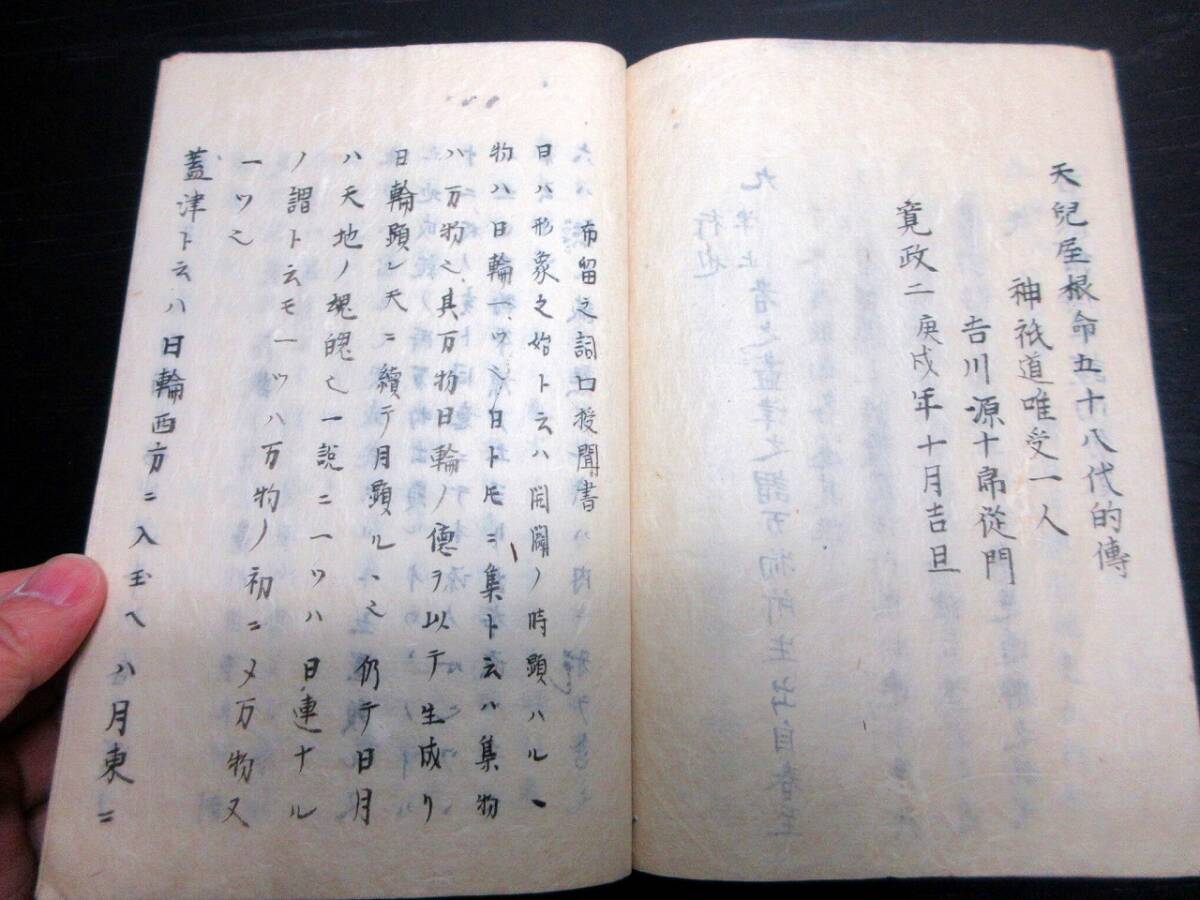 天兒屋根命五十八代的傳
神祇道唯受一人
吉川源十郎從門
寛政二庚戌年十月吉旦
布留之詞口授聞書
日ハ形象之始ト云ハ開闢ノ時顕ハルヽ
物ハ日輪一ツ也日トモニ集ト云ハ集物
ハ万物也其万物日輪ノ德ヲ以テ生成リ
日輪顕レ天ニ續テ月顕ルヽ也仍テ日月
ハ天地ノ魂魄也一説ニ一ツハ日連ナル
ノ謂ト云モ一ツハ万物ノ初ニメ万物又
一ツ也
蓋津ト云ハ日輪西方ニ入玉ヘハ月東ニ